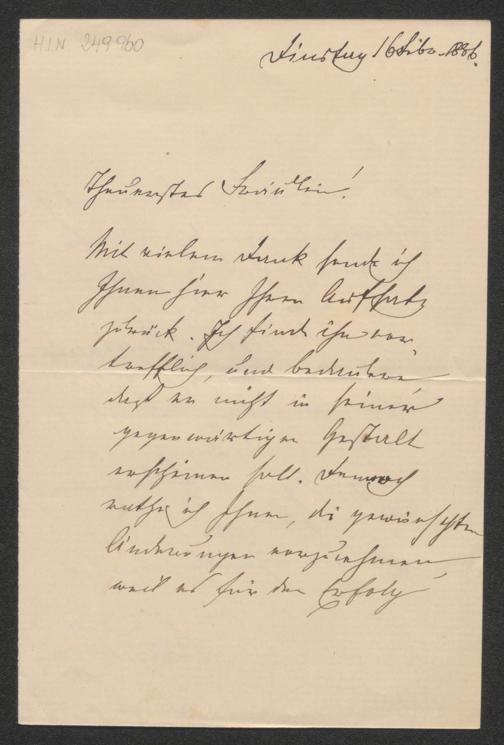 HIN 249960
Dinstag 16 Febr. 1886.
Theuerstes Fräulein!
Mit vielem Dank sende ich
Ihnen hier Ihren Aufsatz
zurück. Ich finde ihn vor
trefflich, und bedauere
daß er nicht in seiner
gegenwärtigen Gestalt
erscheinen soll. Dennoch
rathe ich Ihnen, die gewünschten
Änderungen vorzunehmen,
weil es für den Erfolg